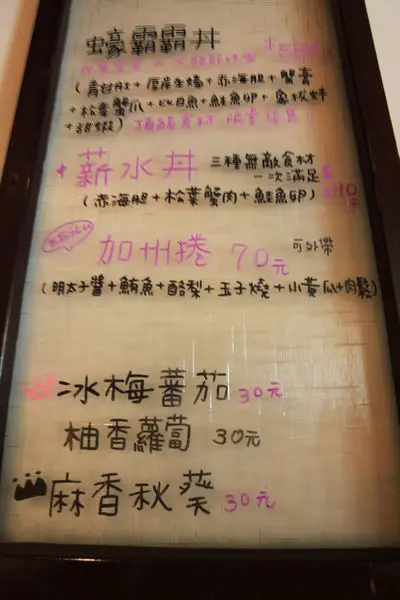 蠔霸霸丼
(青甘魚+厚岸生蠔+赤海胆+蟹膏
+松葉蟹爪+比目魚+鮭魚卵+象拔蚌
+甜蝦) 頂級食材
薪水丼 三種無敵食材
一次滿足
(赤海胆+松葉蟹肉+鮭魚卵)
加州捲 70元 可外帶
(明太子醬+鮪魚+酪梨+玉子燒+小黃瓜+肉鬆)
冰梅蕃茄 30元
柚香蘿蔔 30元
麻香秋葵 30元